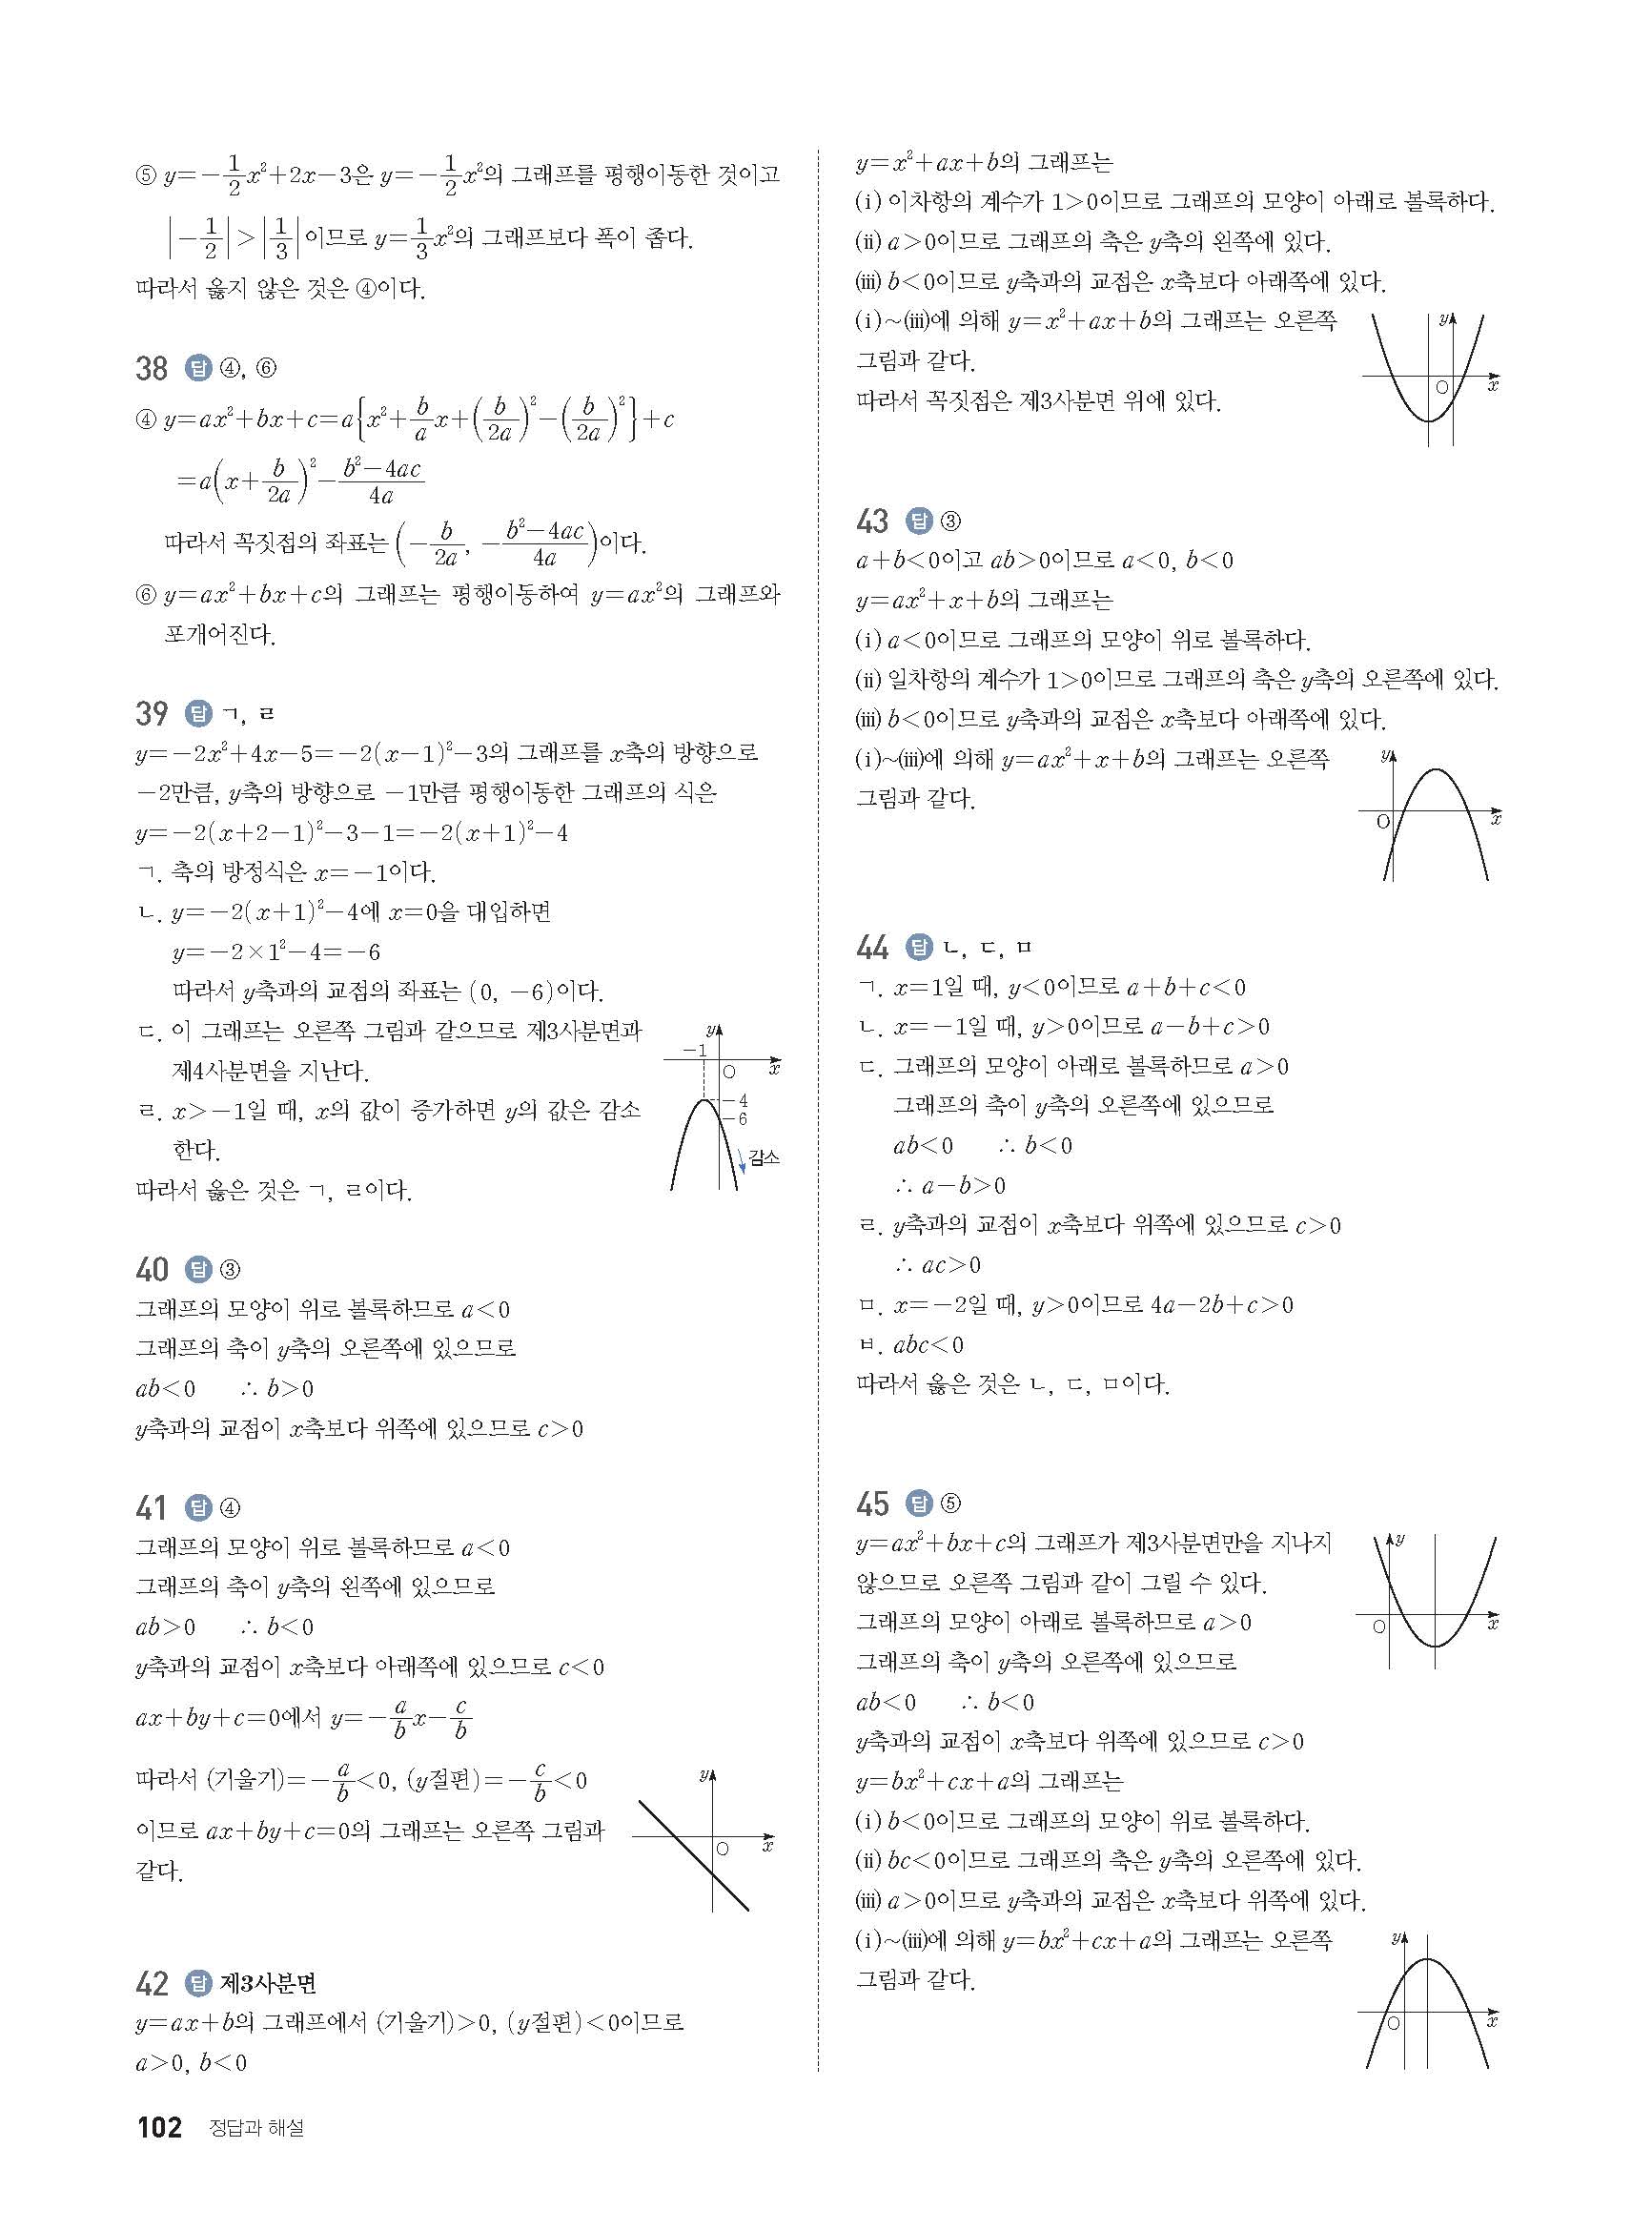 ⑤ y=-1/2x²+2x-3은 y=-1/2x²의 그래프를 평행이동한 것이고
|-1/2|>|1/3|이므로 y=1/3x²의 그래프보다 폭이 좁다.
따라서 옳지 않은 것은 ④이다.
38 답 ④, ⑥
④ y=ax²+bx+c=a{x²+b/a x+(b/2a)²-(b/2a)²}+c
=a(x+b/2a)²-(b²-4ac)/4a
따라서 꼭짓점의 좌표는 (-b/2a, -(b²-4ac)/4a)이다.
⑥ y=ax²+bx+c의 그래프는 평행이동하여 y=ax²의 그래프와
포개어진다.
39 답 ㄱ, ㄹ
y=-2x²+4x-5=-2(x-1)²-3의 그래프를 x축의 방향으로
-2만큼, y축의 방향으로 -1만큼 평행이동한 그래프의 식은
y=-2(x+2-1)²-3-1=-2(x+1)²-4
ㄱ. 축의 방정식은 x=-1이다.
ㄴ. y=-2(x+1)²-4에 x=0을 대입하면
y=-2×1²-4=-6
따라서 y축과의 교점의 좌표는 (0, -6)이다.
ㄷ. 이 그래프는 오른쪽 그림과 같으므로 제3사분면과
제4사분면을 지난다.
ㄹ. x>-1일 때, x의 값이 증가하면 y의 값은 감소
한다.
따라서 옳은 것은 ㄱ, ㄹ이다.
y
-1
O
x
-4
-6
감소
40 답 ③
그래프의 모양이 위로 볼록하므로 a<0
그래프의 축이 y축의 오른쪽에 있으므로
ab<0 ∴ b>0
y축과의 교점이 x축보다 위쪽에 있으므로 c>0
41 답 ④
그래프의 모양이 위로 볼록하므로 a<0
그래프의 축이 y축의 왼쪽에 있으므로
ab>0 ∴ b<0
y축과의 교점이 x축보다 아래쪽에 있으므로 c<0
ax+by+c=0에서 y=-a/b x-c/b
따라서 (기울기)=-a/b<0, (y절편)=-c/b<0
이므로 ax+by+c=0의 그래프는 오른쪽 그림과
같다.
y
O
x
42 답 제3사분면
y=ax+b의 그래프에서 (기울기)>0, (y절편)<0이므로
a>0, b<0
y=x²+ax+b의 그래프는
(ⅰ) 이차항의 계수가 1>0이므로 그래프의 모양이 아래로 볼록하다.
(ⅱ) a>0이므로 그래프의 축은 y축의 왼쪽에 있다.
(ⅲ) b<0이므로 y축과의 교점은 x축보다 아래쪽에 있다.
(ⅰ)~(ⅲ)에 의해 y=x²+ax+b의 그래프는 오른쪽
그림과 같다.
따라서 꼭짓점은 제3사분면 위에 있다.
y
O
x
43 답 ③
a+b<0이고 ab>0이므로 a<0, b<0
y=ax²+x+b의 그래프는
(ⅰ) a<0이므로 그래프의 모양이 위로 볼록하다.
(ⅱ) 일차항의 계수가 1>0이므로 그래프의 축은 y축의 오른쪽에 있다.
(ⅲ) b<0이므로 y축과의 교점은 x축보다 아래쪽에 있다.
(ⅰ)~(ⅲ)에 의해 y=ax²+x+b의 그래프는 오른쪽
그림과 같다.
y
O
x
44 답 ㄴ, ㄷ, ㅁ
ㄱ. x=1일 때, y<0이므로 a+b+c<0
ㄴ. x=-1일 때, y>0이므로 a-b+c>0
ㄷ. 그래프의 모양이 아래로 볼록하므로 a>0
그래프의 축이 y축의 오른쪽에 있으므로
ab<0 ∴ b<0
∴ a-b>0
ㄹ. y축과의 교점이 x축보다 위쪽에 있으므로 c>0
∴ ac>0
ㅁ. x=-2일 때, y>0이므로 4a-2b+c>0
ㅂ. abc<0
따라서 옳은 것은 ㄴ, ㄷ, ㅁ이다.
45 답 ⑤
y=ax²+bx+c의 그래프가 제3사분면만을 지나지
않으므로 오른쪽 그림과 같이 그릴 수 있다.
그래프의 모양이 아래로 볼록하므로 a>0
그래프의 축이 y축의 오른쪽에 있으므로
ab<0 ∴ b<0
y축과의 교점이 x축보다 위쪽에 있으므로 c>0
y
O
x
y=bx²+cx+a의 그래프는
(ⅰ) b<0이므로 그래프의 모양이 위로 볼록하다.
(ⅱ) bc<0이므로 그래프의 축은 y축의 오른쪽에 있다.
(ⅲ) a>0이므로 y축과의 교점은 x축보다 위쪽에 있다.
(ⅰ)~(ⅲ)에 의해 y=bx²+cx+a의 그래프는 오른쪽
그림과 같다.
y
O
x
102 정답과 해설